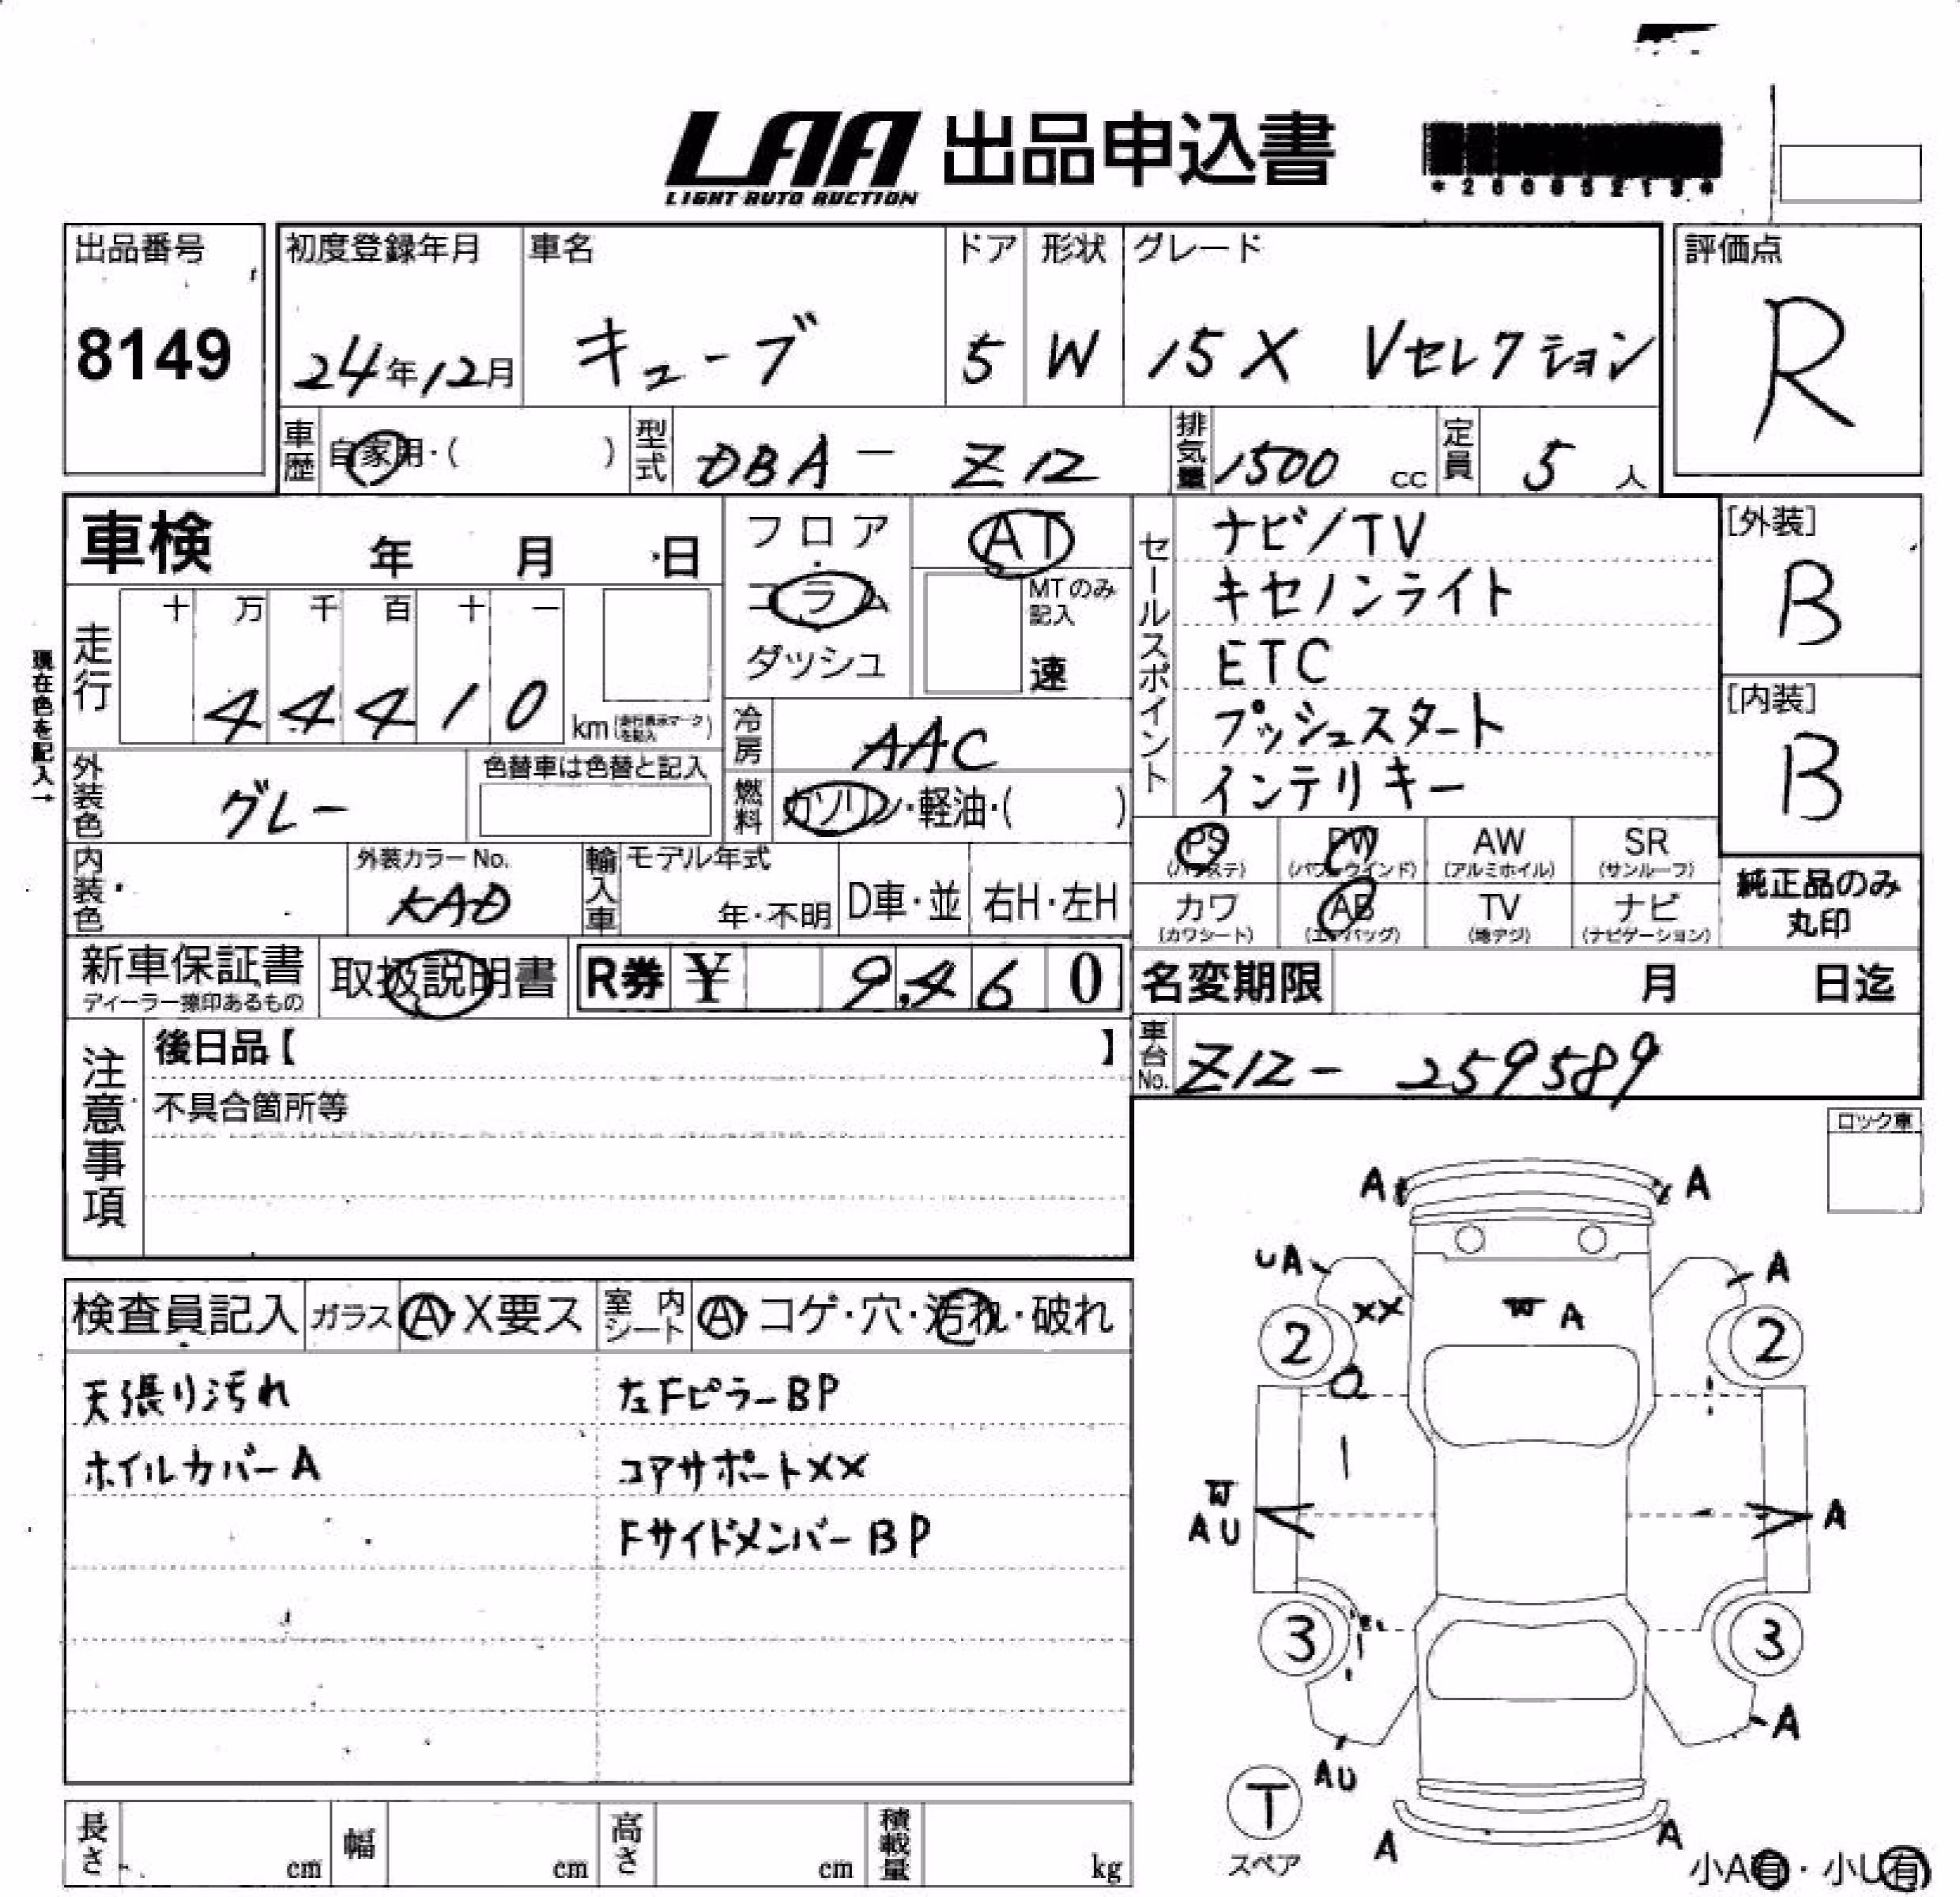 LAA 出品申込書
LIGHT AUTO AUCTION
出品番号
8149
初度登録年月
24年12月
車名
キューブ
ドア
5
形状
W
グレード
15X Vセレクション
評価点
R
車歴 自家用・( )
型式 DBA-Z12
排気量 1500 cc
定員 5 人
車検 年 月 日
フロア・コラム
ダッシュ
AT
MTのみ記入
速
セールスポイント
ナビ/TV
キセノンライト
ETC
プッシュスタート
インテリキー
[外装]
B
[内装]
B
現在色を記入→
走行
十 万 千 百 十 一
4 4 4 1 0
km (走行表示マークを記入)
冷房 AAC
燃料 ガソリン・軽油・( )
外装色 グレー
色替車は色替と記入
内装色
外装カラーNo.
KAD
輸入車
モデル年式
年・不明
D車・並
右H・左H
PS (パワステ)
PW (パワーウインド)
AW (アルミホイル)
SR (サンルーフ)
カワ (カワシート)
AB (エアバッグ)
TV (地デジ)
ナビ (ナビゲーション)
純正品のみ
丸印
新車保証書
ディーラー捺印あるもの
取扱説明書
R券 ¥ 9,460
名変期限 月 日迄
車台No. Z12-259589
注意事項
後日品【 】
不具合箇所等
ロック車
検査員記入
ガラス A・X要ス
室内シート A・コゲ・穴・汚れ・破れ
天張り汚れ
ホイルカバーA
左FピラーBP
コアサポートXX
FサイドメンバーBP
A A
UA A
XX
W A
2 2
W
AU A
3 3
A
AU
T
スペア
A A
小A有・小U有
長さ cm
幅 cm
高さ cm
積載量 kg